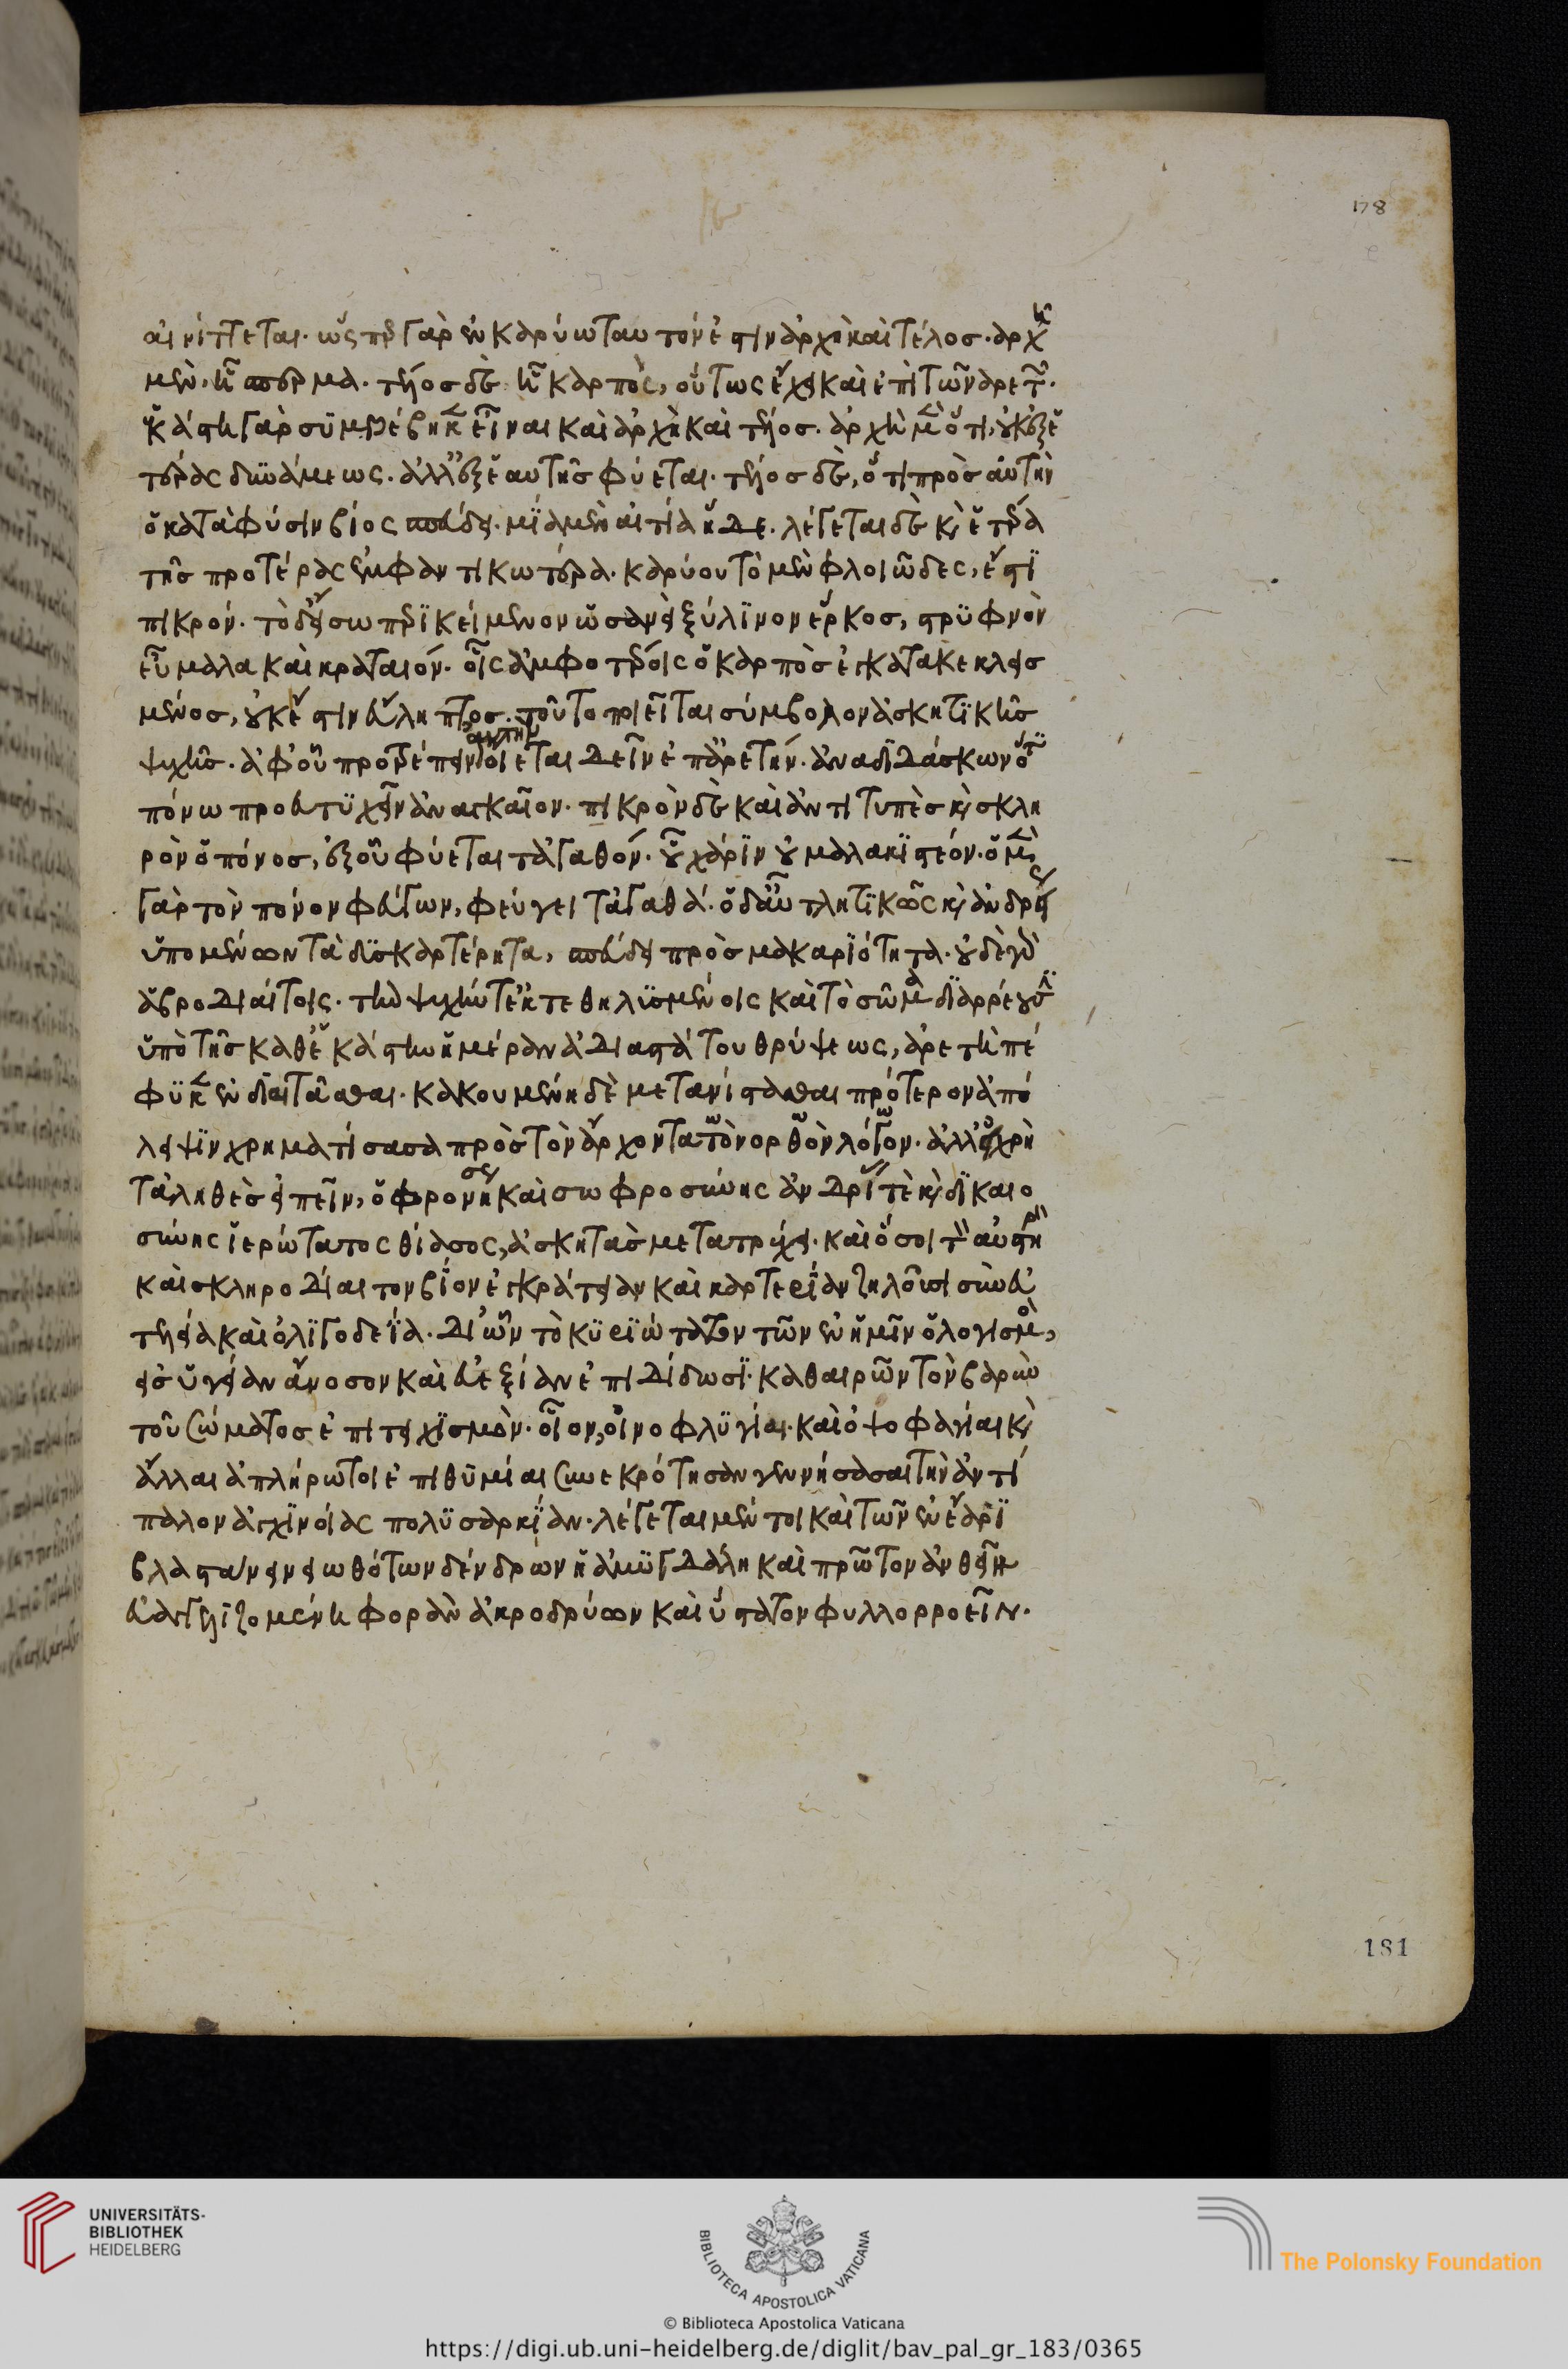 178
αἰνίττεται· ὥσπερ γὰρ ἐν καρύω ταυτόν ἐστιν ἀρχὴ καὶ τέλος· ἀρχὴ
μὲν, ἧ σπέρμα· τέλος δὲ ἧ καρπὸς, οὕτως ἔχει καὶ ἐπὶ τῶν ἀρετῶν·
ἑκάστη γὰρ συμβέβηκεν εἶναι καὶ ἀρχὴν καὶ τέλος· ἀρχὴν μὲν ὅτι οὐκ ἐξ ἑ
τέρας δυνάμεως· ἀλλ' ἐξ ἑαυτῆς φύεται· τέλος δὲ, ὅτι πρὸς αὐτὴν
ὁ κατὰ φύσιν βίος σπεύδει· μία μὲν αἰτία ἥδε· λέγεται δὲ καὶ ἑτέρα
τῆς προτέρας ἐμφαντικωτέρα· καρύου τὸ μὲν φλοιῶδες, ἐστὶ
πικρόν· τὸ δ' εἴσω περικείμενον ὡσανεὶ ξύλινον ἕρκος, στρυφνὸν
εὖ μάλα καὶ κραταιόν· οἷς ἀμφοτέροις ὁ καρπὸς ἐγκατακεκλεισ
μένος, οὐκ ἔστιν εὔληπτος. τοῦτο ποιεῖται σύμβολον ἀσκητικῆς
ψυχῆς· ἀφ' οὗ προτρέπειν αὐτὴν οἴεται δεῖν ἐπ' ἀρετήν· ἀναδιδάσκων ὅτι
πόνω προεντυχεῖν ἀναγκαῖον· πικρὸν δὲ καὶ ἀντιτυπὲς καὶ σκλη
ρὸν ὁ πόνος, ἐξ οὗ φύεται τἀγαθόν· οὗ χάριν οὐ μαλακιστέον· ὁ μὲν
γὰρ τὸν πόνον φεύγων, φεύγει τἀγαθά· ὁ δ' αὖ τλητικῶς καὶ ἀνδρείως
ὑπομένων τὰ δυσκαρτέρητα, σπεύδει πρὸς μακαριότητα· οὐδὲ γὰρ
ἁβροδιαίτοις· τὴν ψυχήν τε ἐκτεθηλυσμένοις καὶ τὸ σῶμα διαρρέουσιν
ὑπὸ τῆς καθ' ἑκάστην ἡμέραν ἀδιαστάτου θρύψεως, ἀρετὴ πέ
φυκεν ἐνδιαιτᾶσθαι· κακουμένη δὲ μετανίστασθαι πρότερον ἀπό
λειψιν χρηματίσασα πρὸς τὸν ἄρχοντα τὸν ὀρθὸν λόγον· ἀλλ' εἰ χρὴ
τἀληθὲς εἰπεῖν, ὁ φρονήσεως καὶ σωφροσύνης ἀνδρίας τὲ καὶ δικαιο
σύνης ἱερώτατος θίασος, ἀσκητὰς μετατρέχει· καὶ ὅσοι τὸν αὐστηρὸν
καὶ σκληροδίαιτον βίον ἐγκράτειαν καὶ καρτερίαν ζηλοῦσι σὺν εὐ
τελεία καὶ ὀλιγοδεΐα· δι' ὧν τὸ κυριώτατον τῶν ἐν ἡμῖν ὁ λογισμὸς,
εἰς ὑγείαν ἄνοσον καὶ εὐεξίαν ἐπιδίδωσι· καθαιρῶν τὸν βαρὺν
τοῦ σώματος ἐπιτειχισμὸν· οἷον, οἰνοφλυγίαι· καὶ ὀψοφαγίαι καὶ
ἄλλαι ἀπλήρωτοι ἐπιθυμίαι συνεκρότησαν γεννήσασαι τὴν ἀντί
παλον ἀγχινοίας πολυσαρκίαν· λέγεται μέντοι καὶ τῶν ἐν ἔαρι
βλαστάνειν εἰωθότων δένδρων ἡ ἀμυγδάλη καὶ πρῶτον ἀνθεῖν
εὐαγγελιζομένη φορὰν ἀκροδρύων καὶ ὕστατον φυλλορροεῖν·
181
UNIVERSITÄTS-
BIBLIOTHEK
HEIDELBERG
BIBLIOTECA APOSTOLICA VATICANA
The Polonsky Foundation
© Biblioteca Apostolica Vaticana
https://digi.ub.uni-heidelberg.de/diglit/bav_pal_gr_183/0365